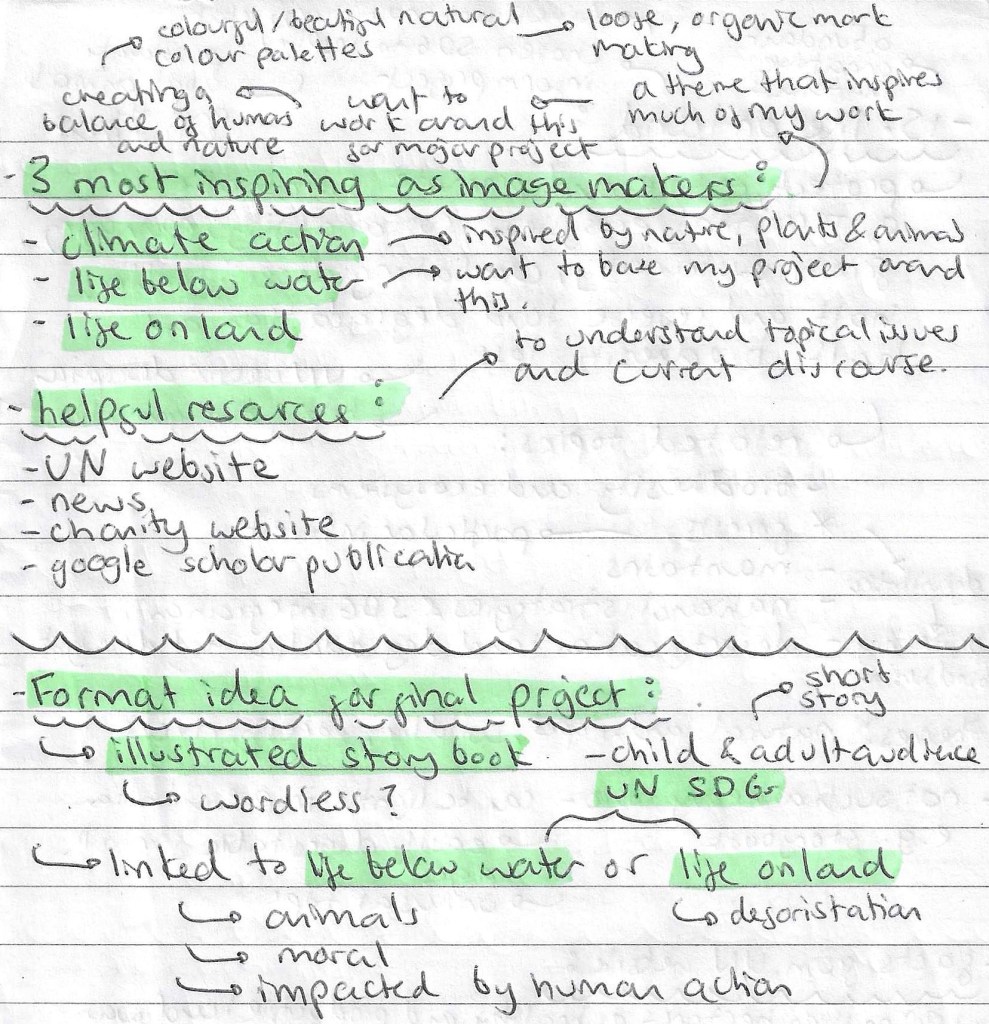 colourful/beautiful natural
colour palettes
loose, organic mark
making
creating a
balance of humans
and nature
want to
work around this
for major project
a theme that inspires
much of my work
- 3 most inspiring as image makers:
- climate action
inspired by nature, plants & animals
- life below water
want to base my project around
this.
- life on land
to understand topical issues
and current discourse.
- helpful resources:
- UN website
- news
- charity website
- google scholar publication
- Format idea for final project:
short
story
illustrated story book
- child & adult audience
wordless?
UN SDGs
linked to life below water or life on land
animals
deforistation
moral
impacted by human action